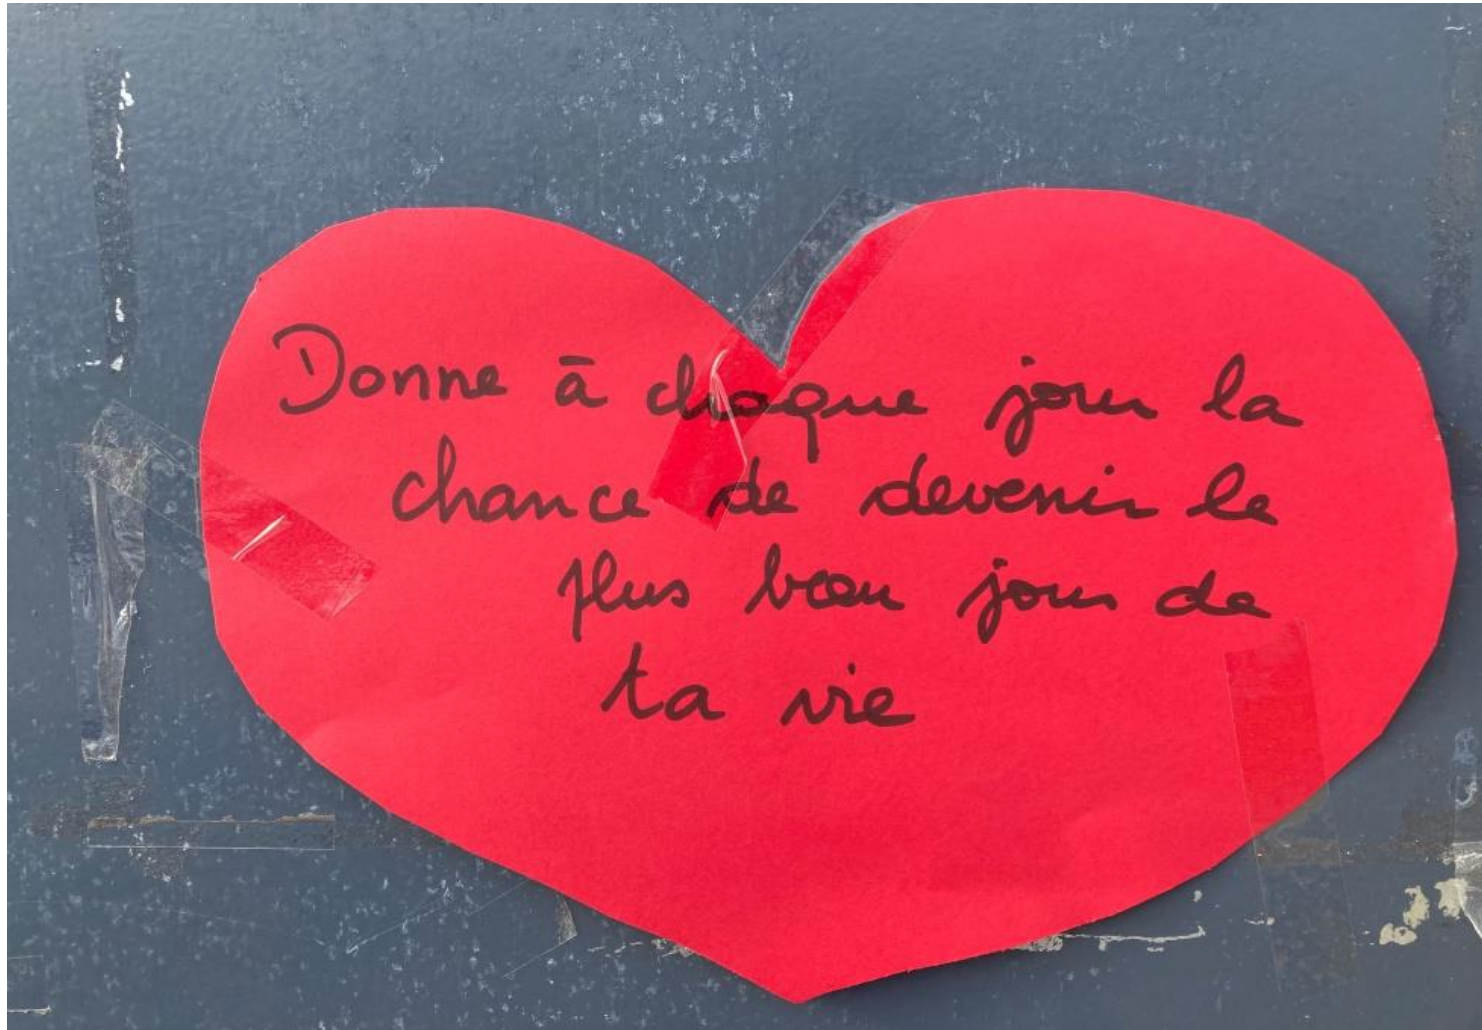 Donne à chaque jour la
chance de devenir le
plus beau jour de
ta vie